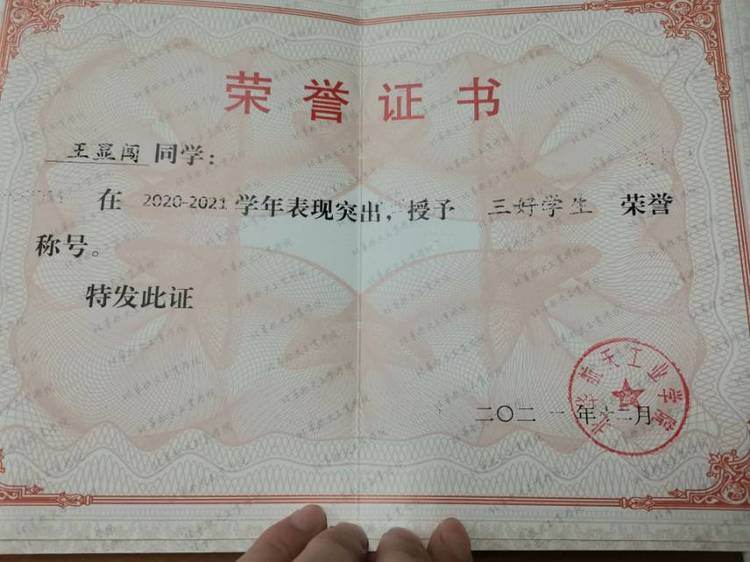 荣誉证书
王显闯 同学：
在 2020-2021 学年表现突出，授予 三好学生 荣誉
称号。
特发此证
北华航天工业学院
二〇二一年十二月